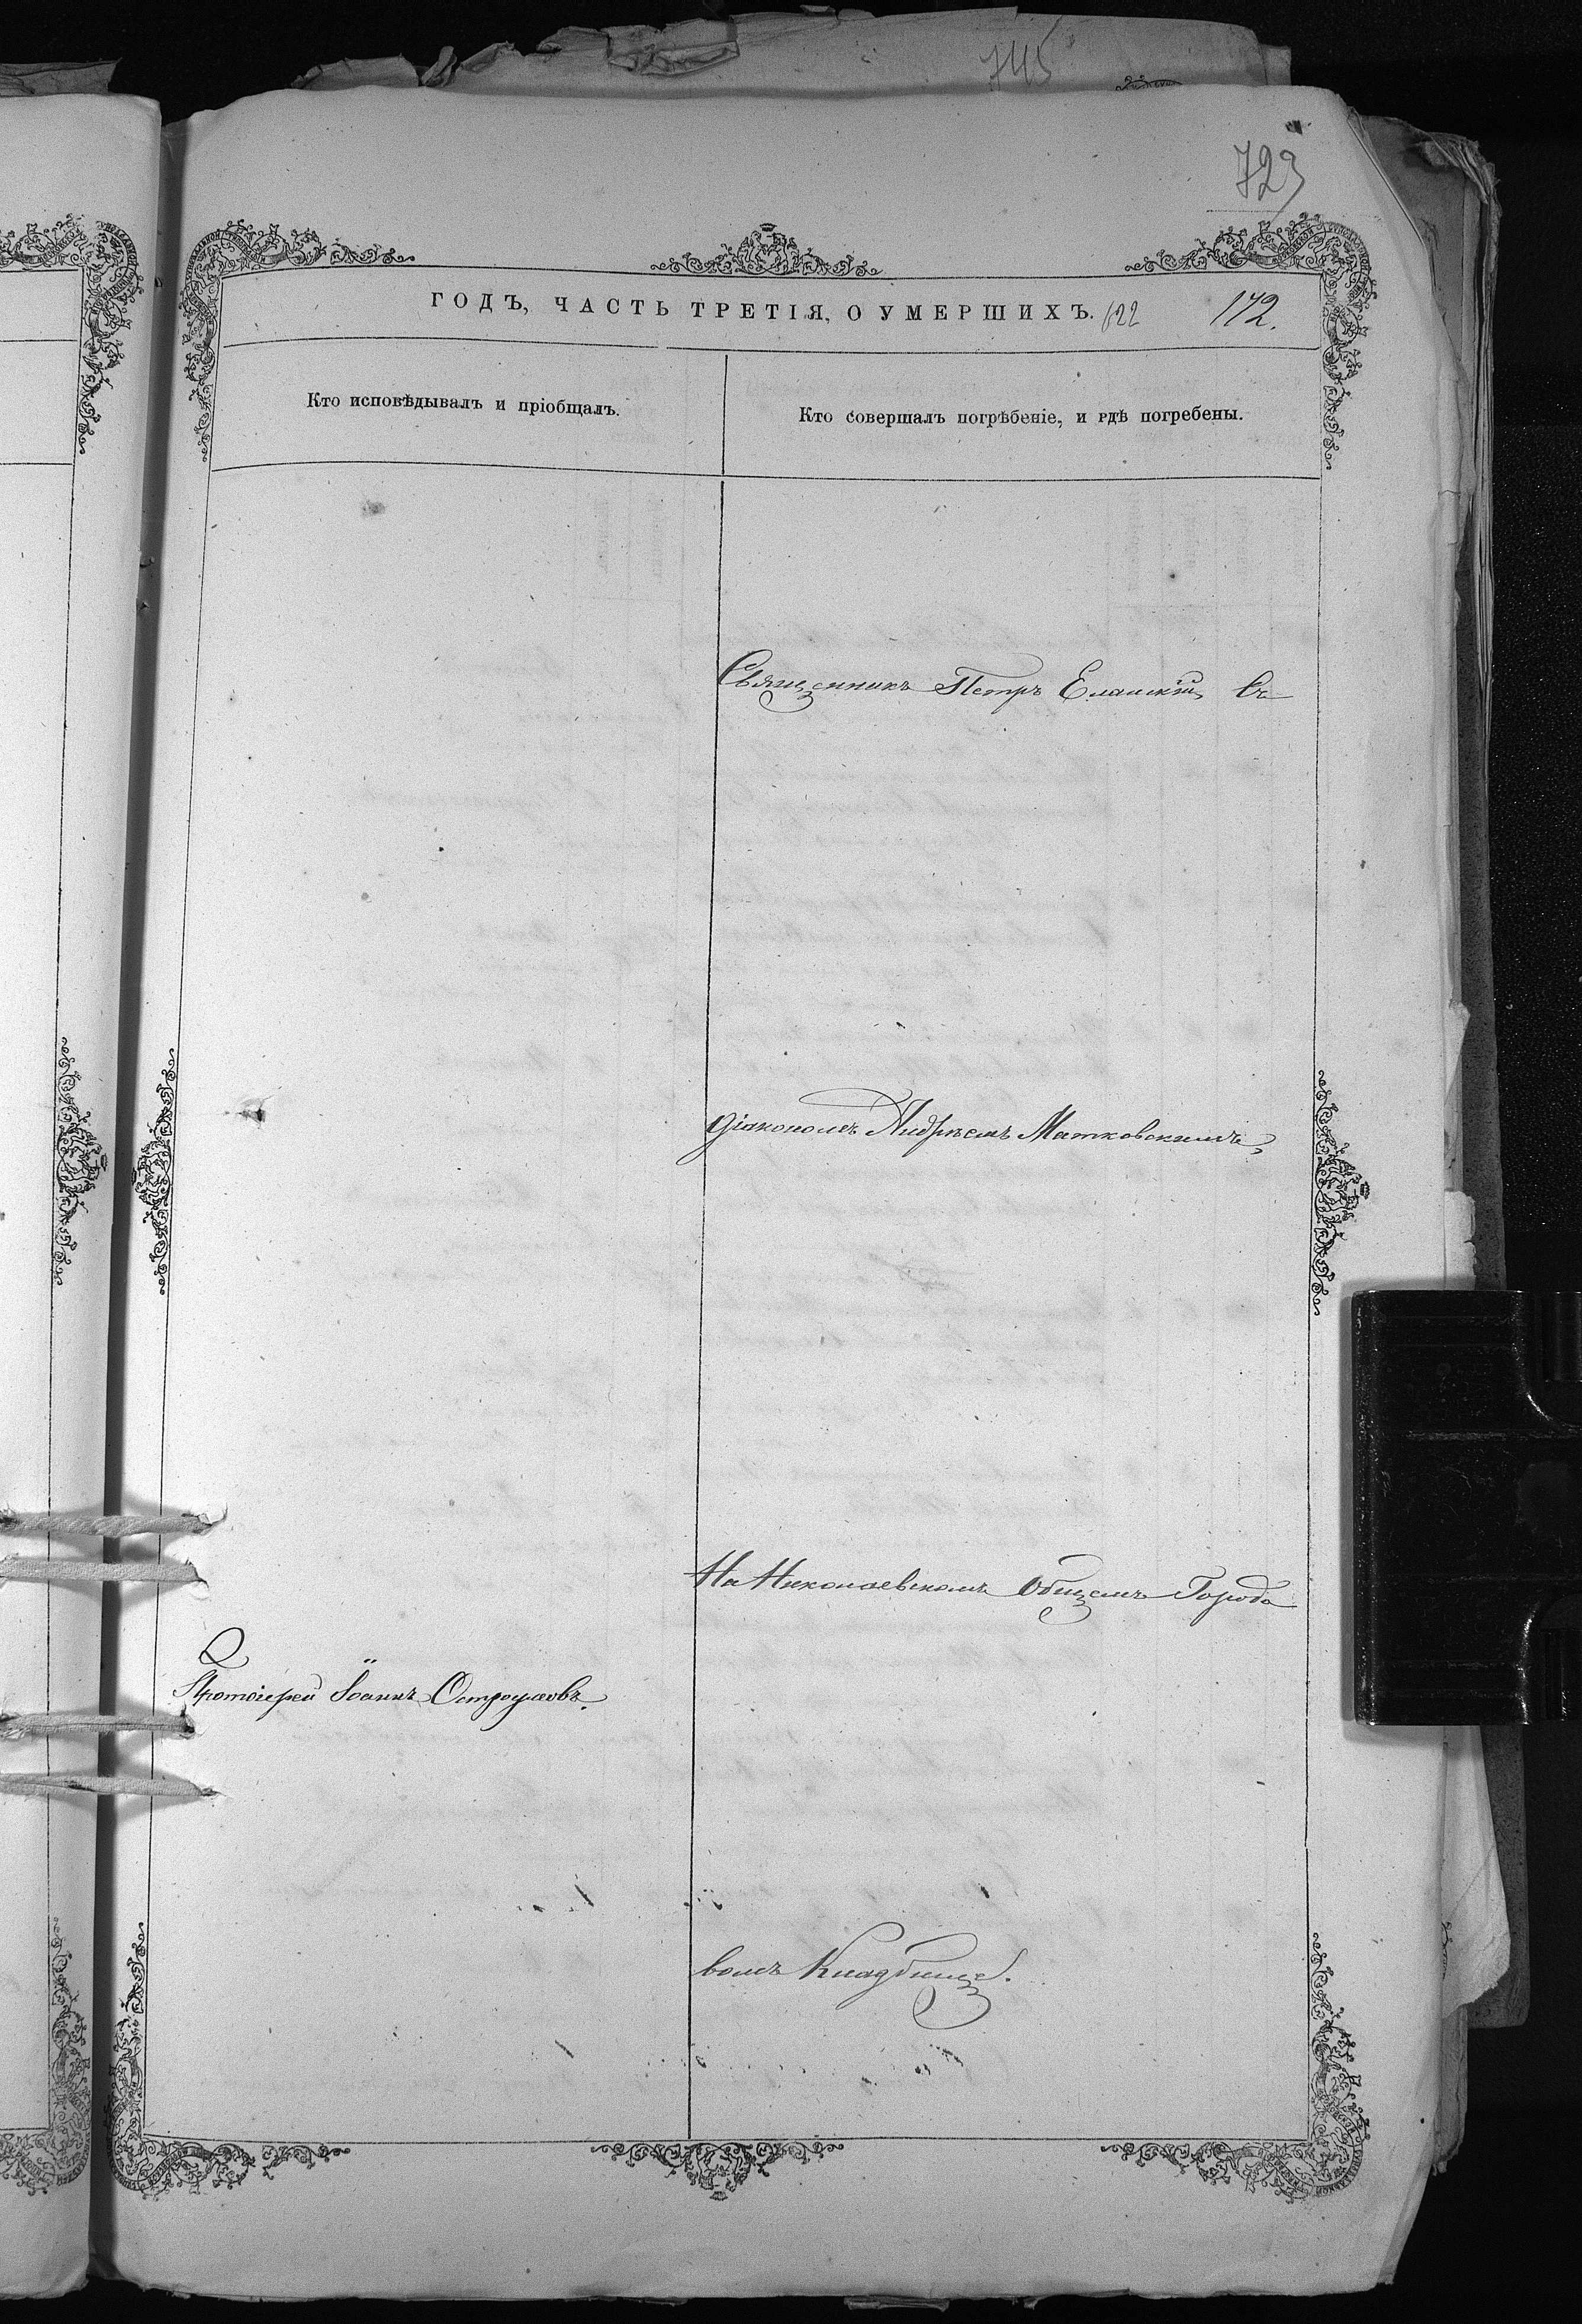 745
723
ГОДЪ, ЧАСТЬ ТРЕТІЯ, О УМЕРШИХЪ. 622 172.
Кто исповѣдывалъ и пріобщалъ.
Кто совершалъ погрѣбеніе, и гдѣ погребены.
Священникъ Петръ Еланскій, съ
діакономъ Андрѣемъ Матковскимъ,
На Николаевскомъ Общемъ Городо
Протоіерей Іоаннъ Остроумовъ.
вомъ Кладбищѣ.